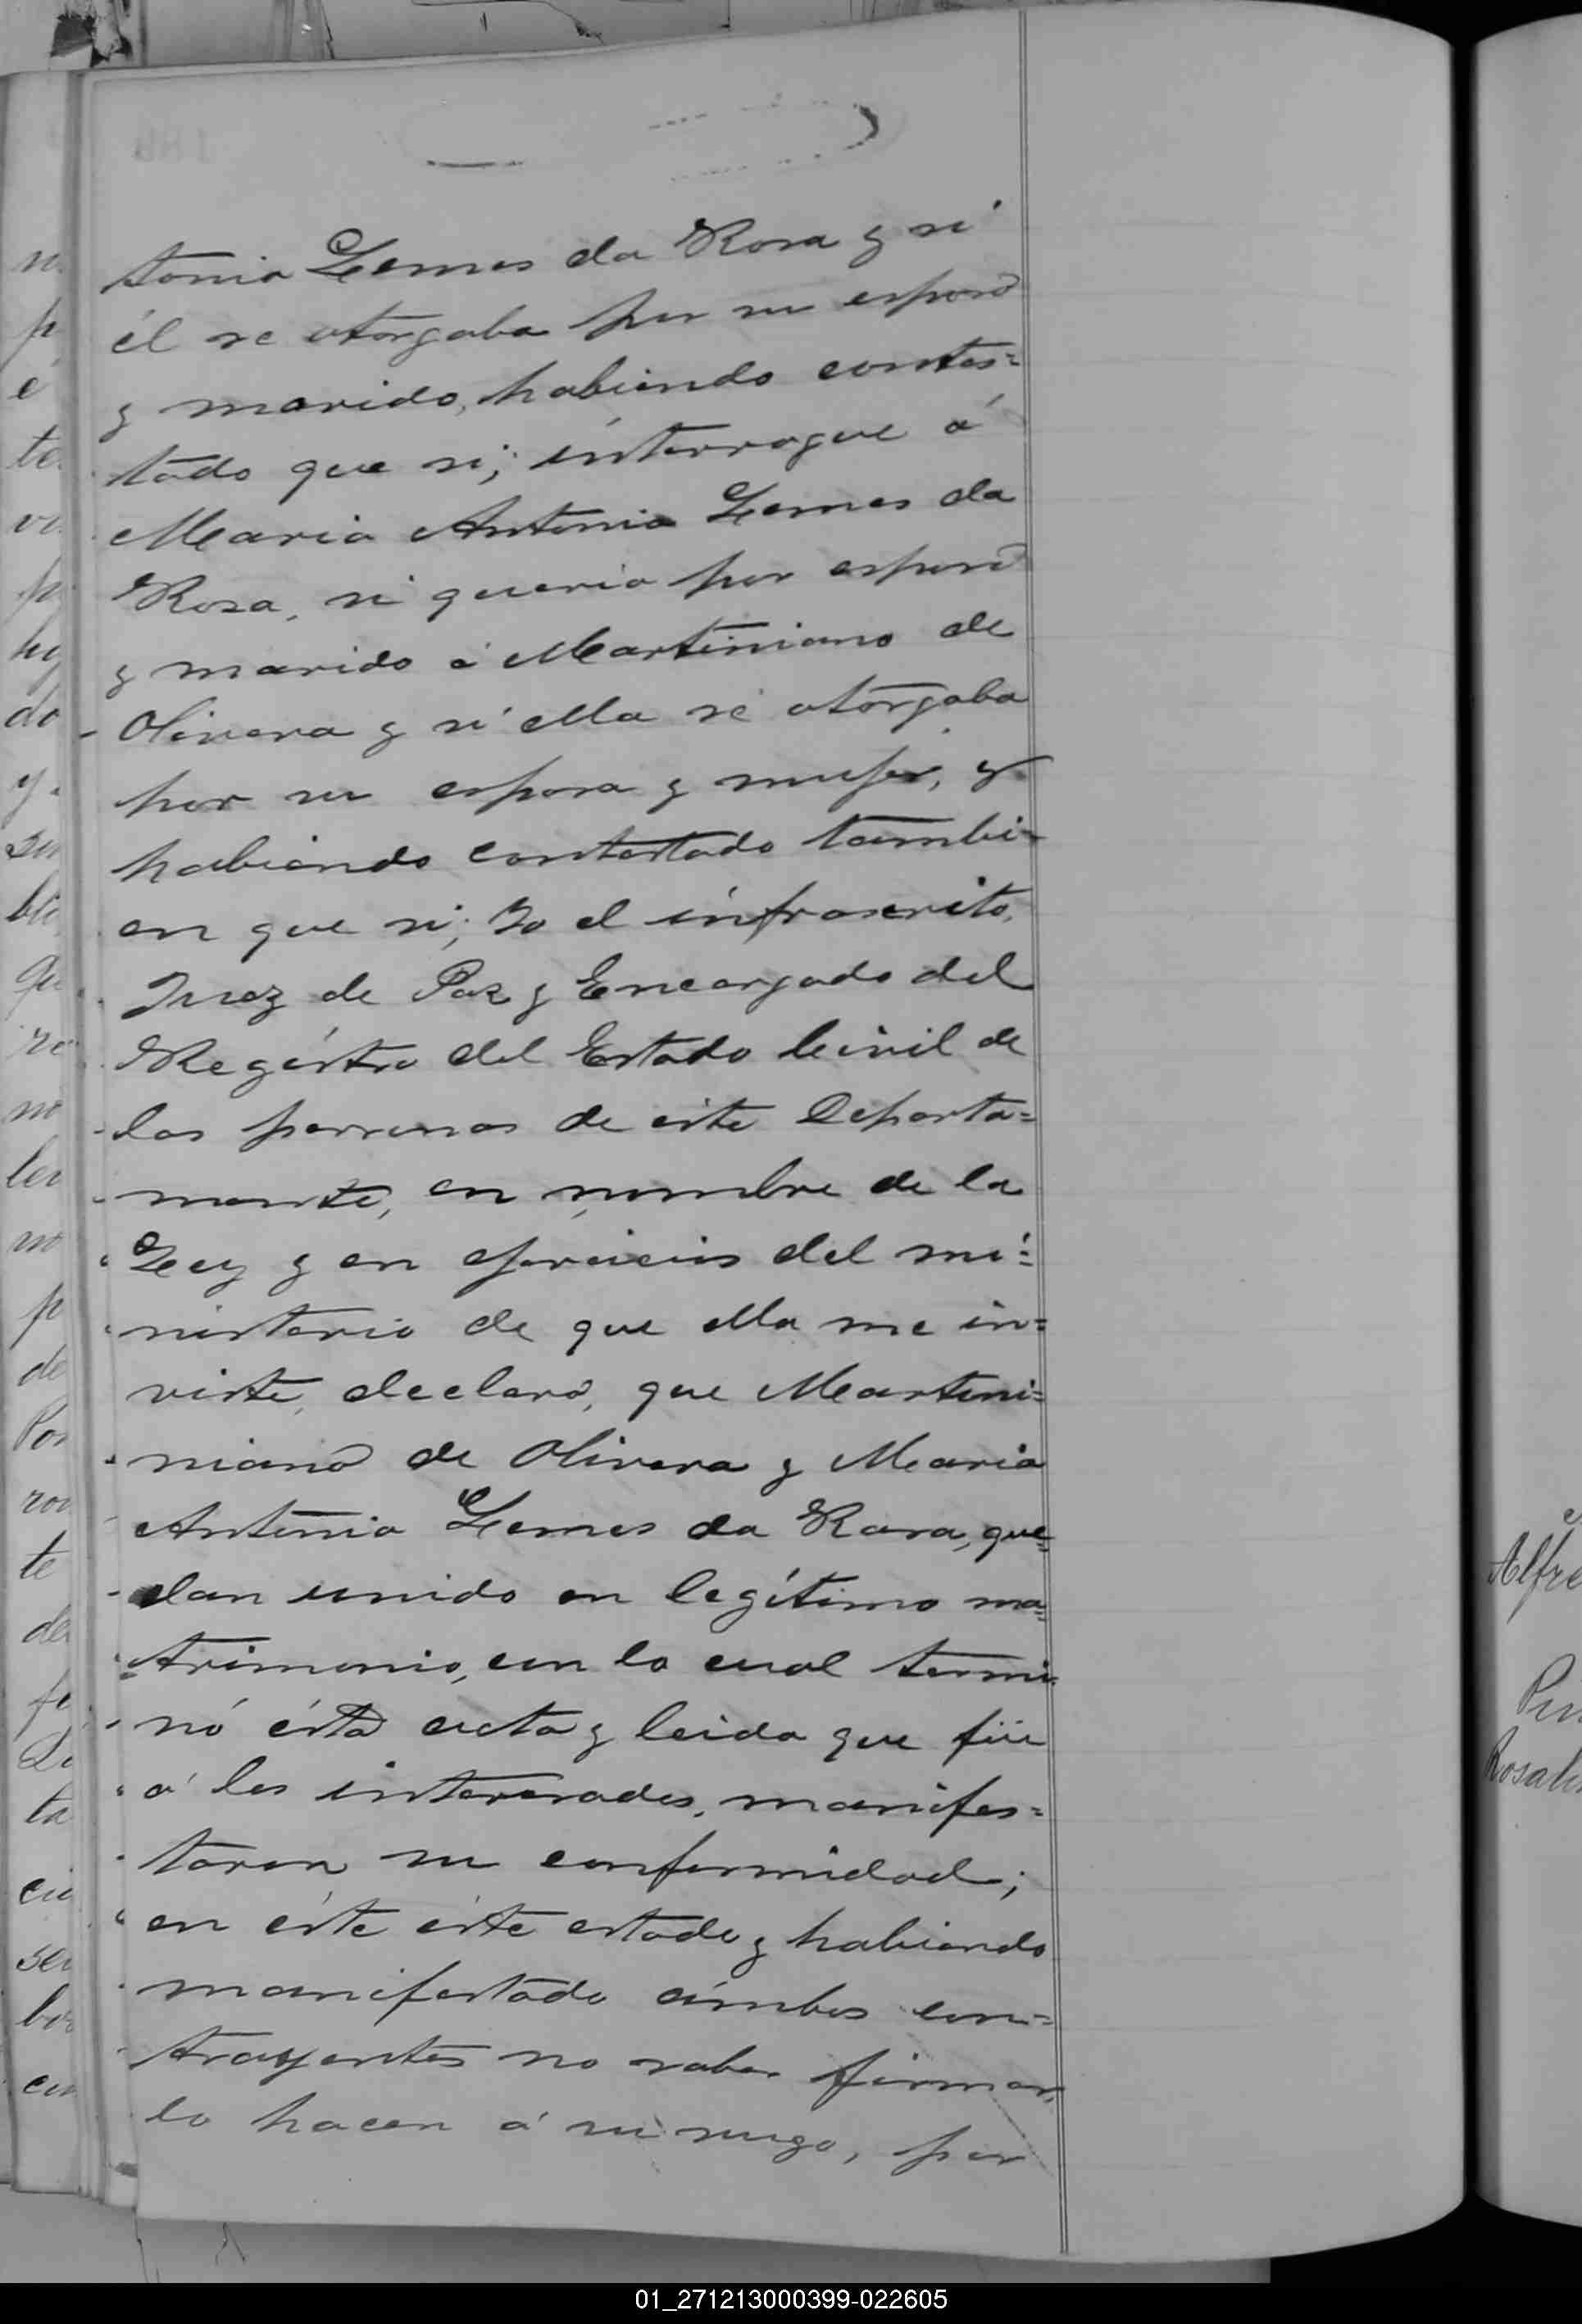 tonia Lemes da Rosa y si
él se otorgaba por su esposo
y marido, habiendo contes=
tado que si; interrogue á
Maria Antonia Lemes da
Rosa, si queria por esposo
y marido á Martiniano de
Olivera y si ella se otorgaba
por su esposa y mujer, y
habiendo contestado tambi=
en que si; Yo el infrascrito,
Juez de Paz y Encargado del
Registro del Estado Civil de
las personas de este Departa=
mento, en nombre de la
Ley y en ejercicio del mi=
nisterio de que ella me in=
viste, declaro, que Martini=
niano de Olivera y Maria
Antonia Lemes da Rosa, que=
dan unido en legítimo ma=
trimonio, con lo cual termi
nó ésta acta y leida que fué
á los interesados, manifes=
taron su conformidad;
en éste éste estado y habiendo
manifestado ámbos con=
trayentes no saber firmar,
lo hacen á su ruego, por
Alfre
Rosali
01_271213000399-022605